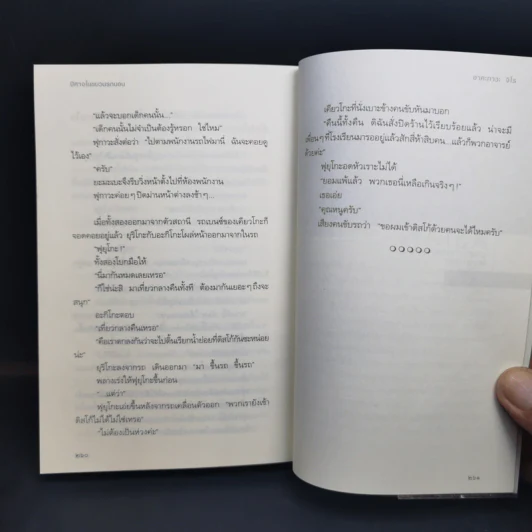 "แล้วจะบอกเด็กคนนั้น..."
"เด็กคนนั้นไม่จำเป็นต้องรู้หรอก ใช่ไหม"
ฟุกาวะสั่งต่อว่า "ไปตามพนักงานรถไฟมานี่ ฉันจะคอยดู
ไว้เอง"
"ครับ"
ฟุกาวะค่อยๆ ปิดม่านหน้าต่างลงช้าๆ...
เมื่อทั้งสองออกมาจากตัวสถานี รถเบนซ์ของเคียวโกะก็
จอดคอยอยู่แล้ว ยูริโกะกับอะกิโกะโผล่หน้าออกมาจากในรถ
"ฟุยุโกะ!"
ทั้งสองโบกมือให้
"นี่มากันหมดเลยเหรอ"
"ก็ใช่น่ะสิ มาเที่ยวกลางคืนทั้งที ต้องมากันเยอะๆ ถึงจะ
สนุก"
อะกิโกะตอบ
"เที่ยวกลางคืนเหรอ"
"คือเราตกลงกันว่าจะไปดื้นเรียกน้ำย่อยที่ดิสโก้กันซะหน่อย
น่ะ"
ยูริโกะลงจากรถ เดินออกมา "มา ขึ้นรถ ขึ้นรถ"
พลางเร่งให้ฟุยุโกะขึ้นก่อน
"...แต่ว่า"
ฟุยุโกะเอ่ยขึ้นหลังจากรถเคลื่อนตัวออก "พวกเรายังเข้า
ดิสโก้ไม่ได้ไม่ใช่เหรอ"
"ไม่ต้องเป็นห่วงค่ะ"
๒๖๐
อาคากาวะ จิโร
เคียวโกะที่นั่งเบาะข้างคนขับหันมาบอก
"คืนนี้ทั้งคืน ดิฉันสั่งปิดร้านไว้เรียบร้อยแล้ว น่าจะมี
เพื่อนๆ ที่โรงเรียนมารออยู่แล้วสักสี่ห้าสิบคน...แล้วก็พวกอาจารย์
ด้วยค่ะ"
ฟุยุโกะอดหัวเราะไม่ได้
"ยอมแพ้แล้ว พวกเธอนี่เหลือเกินจริงๆ!"
เธอเอ่ย
"คุณหนูครับ"
เสียงคนขับรถว่า "ขอผมเข้าดิสโก้ด้วยคนจะได้ไหมครับ"
๒๖๑